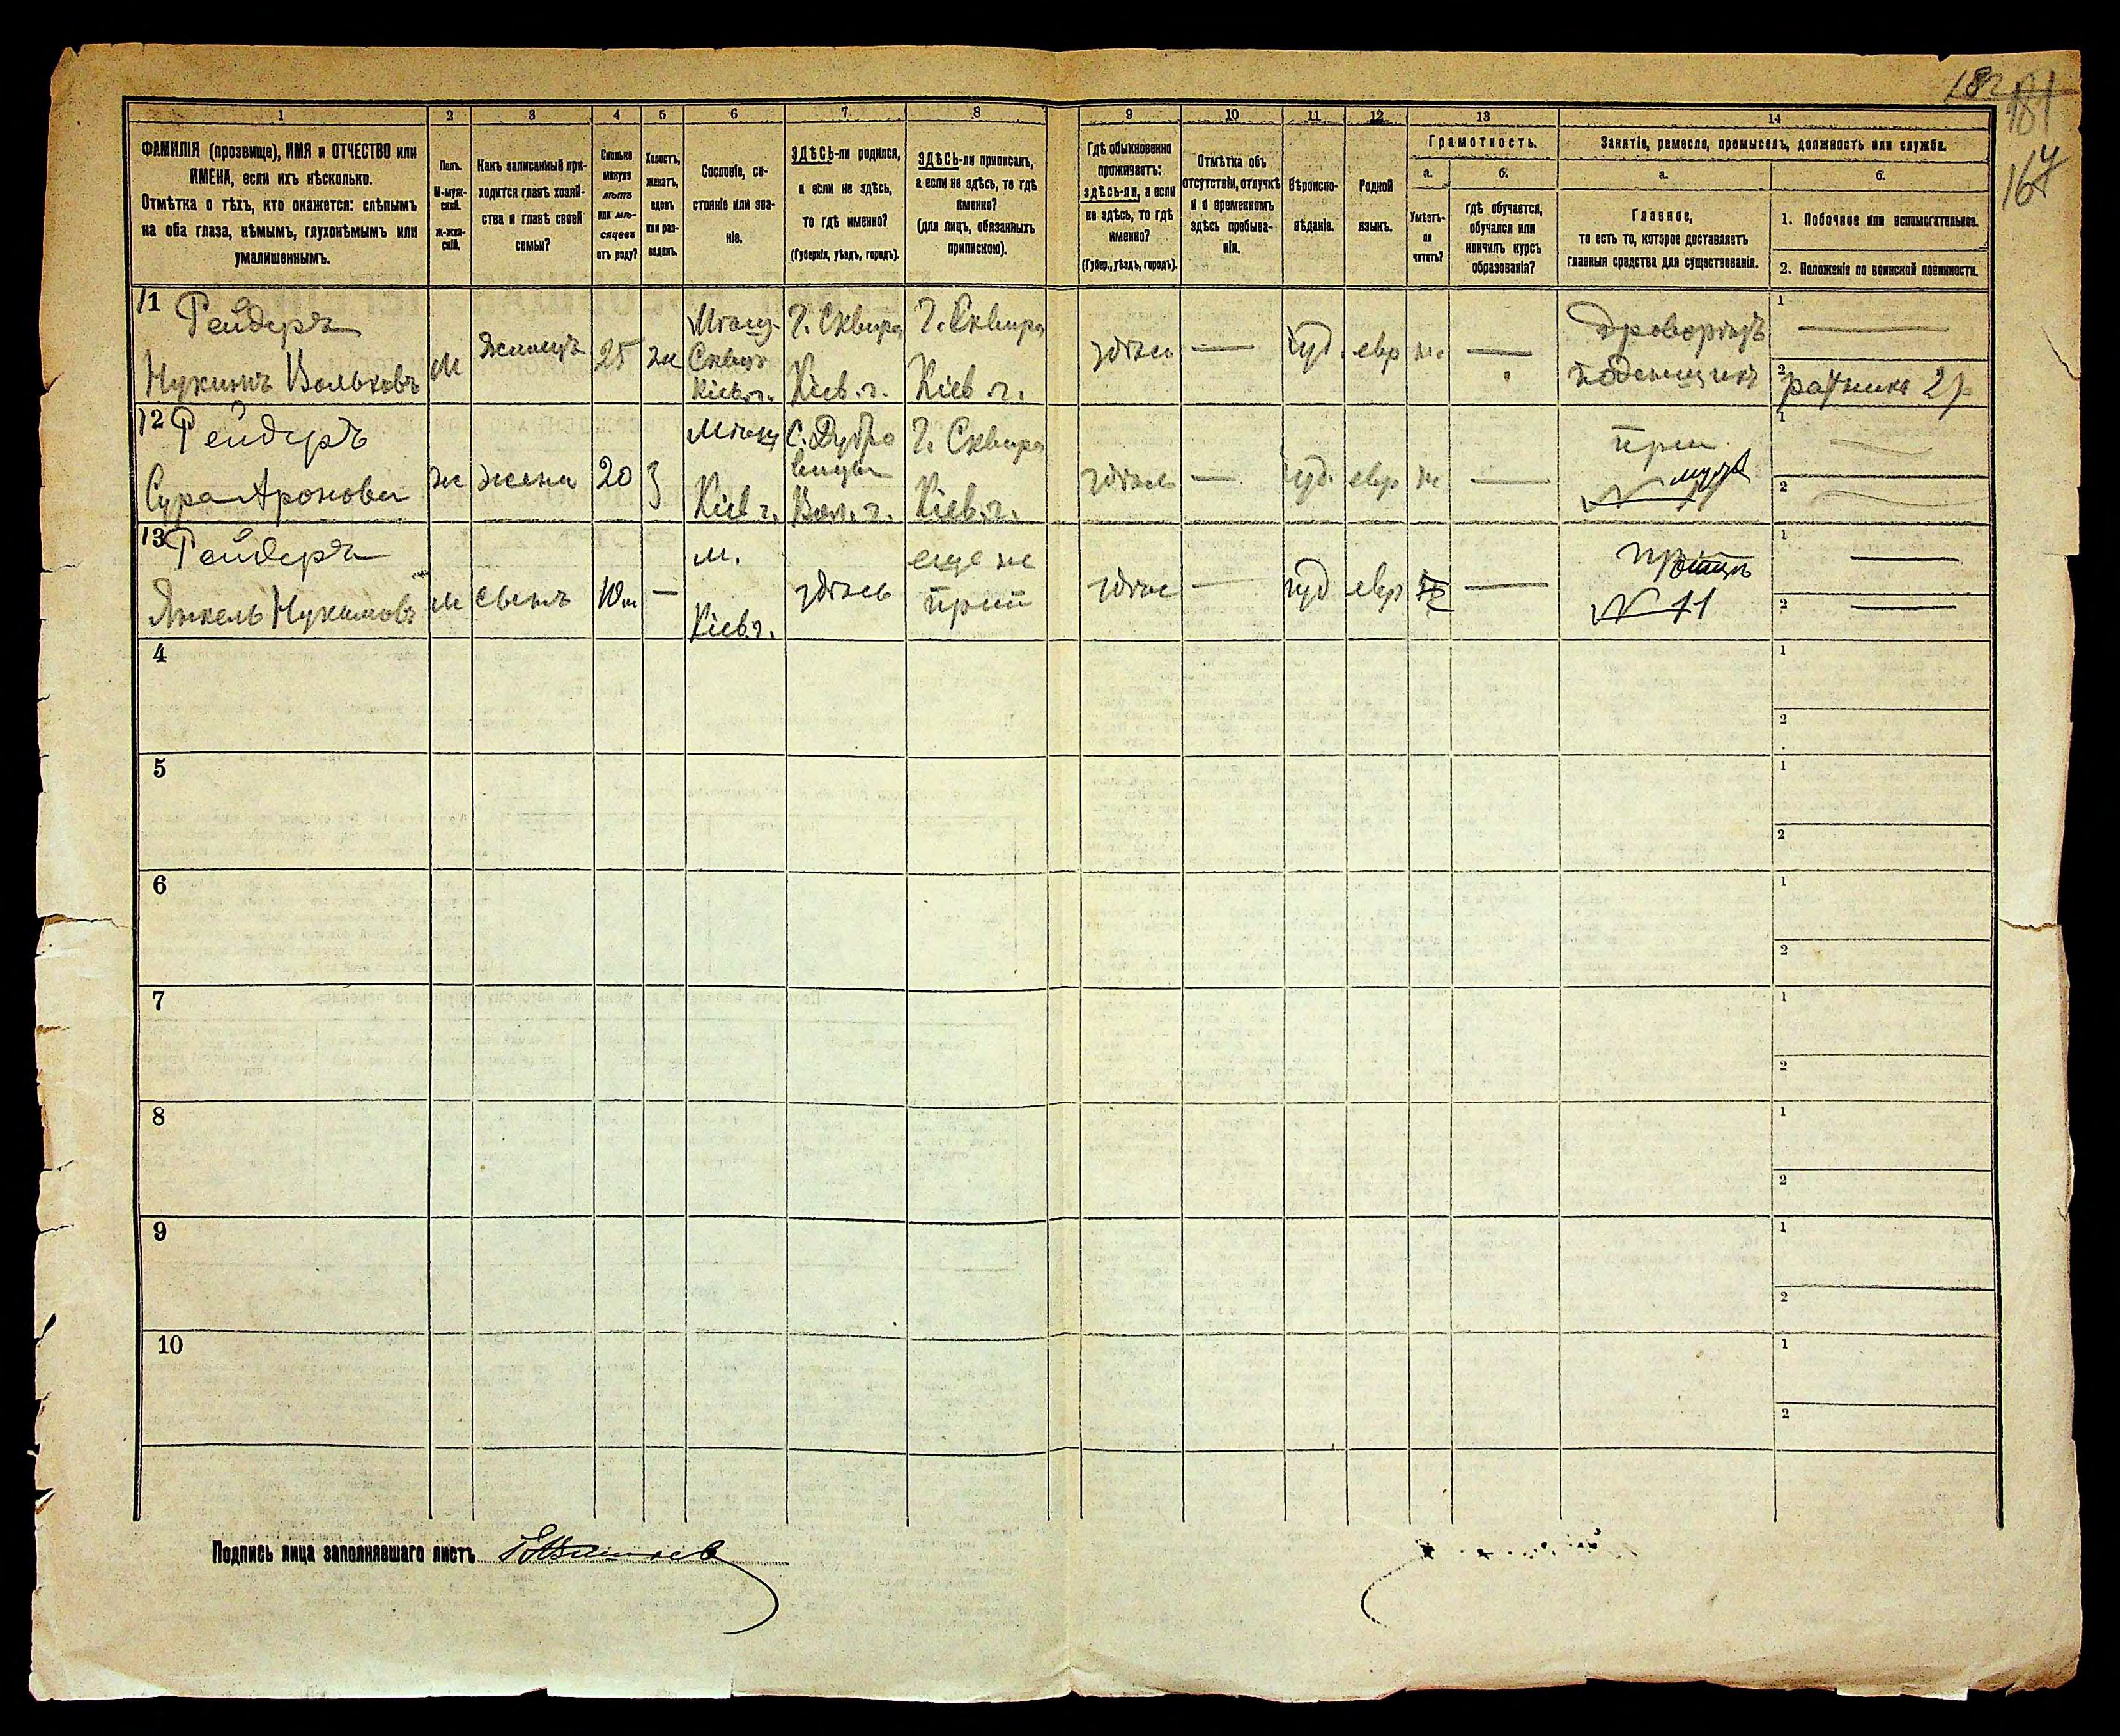 181
167
1 2 3 4 5 6 7 8 9 10 11 12 13 14
ФАМИЛІЯ (прозвище), ИМЯ и ОТЧЕСТВО или
ИМЕНА, если ихъ нѣсколько.
Отмѣтка о тѣхъ, кто окажется: слѣпымъ
на оба глаза, нѣмымъ, глухонѣмымъ или
умалишеннымъ.
Полъ.
М-муж-
ской.
Ж-жен-
скій.
Какъ записанный при-
ходится главѣ хозяй-
ства и главѣ своей
семьи?
Сколько
минуло
лѣтъ
или мѣ-
сяцевъ
отъ роду?
Холостъ,
женатъ,
вдовъ
или раз-
веденъ.
Сословіе, со-
стояніе или зва-
ніе.
ЗДѢСЬ-ли родился,
а если не здѣсь,
то гдѣ именно?
(Губернія, уѣздъ, городъ).
ЗДѢСЬ-ли приписанъ,
а если не здѣсь, то гдѣ
именно?
(для лицъ, обязанныхъ
припискою).
Гдѣ обыкновенно
проживаетъ:
здѣсь-ли, а если
не здѣсь, то гдѣ
именно?
(Губер., уѣздъ, городъ).
Отмѣтка объ
отсутствіи, отлучкѣ
и о временномъ
здѣсь пребыва-
ніи.
Вѣроиспо-
вѣданіе.
Родной
языкъ.
Грамотность.
а.
Умѣетъ-
ли
читать?
б.
гдѣ обучается,
обучался или
кончилъ курсъ
образованія?
Занятіе, ремесло, промыселъ, должность или служба.
а.
Главное,
то есть то, которое доставляетъ
главныя средства для существованія.
б.
1. Побочное или вспомогательное.
2. Положеніе по воинской повинности.
11 Рейдеръ
Нухимъ Вольковъ М жилецъ 25 ж
Мѣщ.
Кіев. г.
Г. Сквира
Кіев. г.
Г. Сквира
Кіев. г.
здѣсь — іуд. евр н. —
поденщикъ
1 —
2 ратникъ 2 р
12 Рейдеръ
Сура Аронова ж жена 20 з
Мѣщ
Кіев г.
С. Дубро
вицы
Вол. г.
Г. Сквира
Кіев. г.
здѣсь — іуд. евр н —
при
мужѣ
№ 11
1
2
13 Рейдеръ
Янкель Нухимовъ М сынъ 10 м —
м.
Кіев. г.
здѣсь
еще не
прип
здѣсь — іуд евр —
при отцѣ
№ 11
1 —
2 —
4 1
2
5 1
2
6 1
2
7 1
2
8 1
2
9 1
2
10 1
2
Подпись лица заполнявшаго листъ